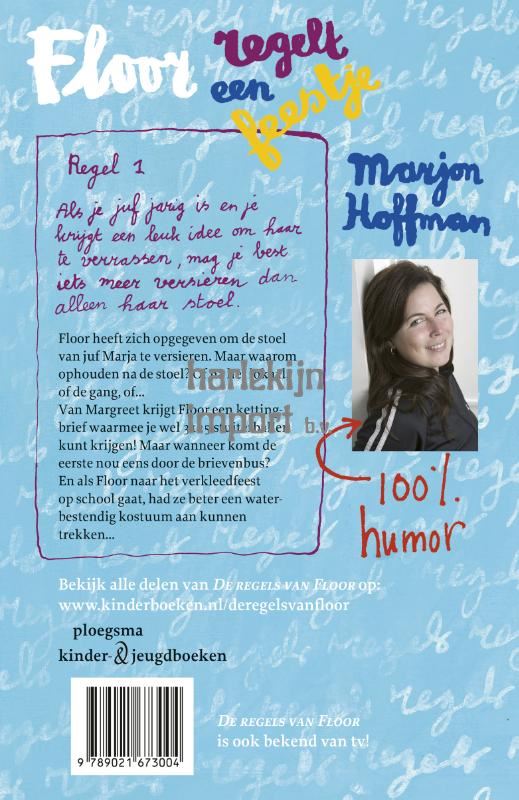 Floor regelt
een
feestje
Regel 1
Als je juf jarig is en je
krijgt een leuk idee om haar
te verrassen, mag je best
iets meer versieren dan
alleen haar stoel.
Marjon
Hoffman
Floor heeft zich opgegeven om de stoel
van juf Marja te versieren. Maar waarom
ophouden na de stoel?
of de gang, of...
Van Margreet krijgt Floor een ketting-
brief waarmee je wel stuiterballen
kunt krijgen! Maar wanneer komt de
eerste nou eens door de brievenbus?
En als Floor naar het verkleedfeest
op school gaat, had ze beter een water-
bestendig kostuum aan kunnen
trekken...
harlekijn
import b.v.
100%
humor
Bekijk alle delen van DE REGELS VAN FLOOR op:
www.kinderboeken.nl/deregelsvanfloor
ploegsma
kinder- & jeugdboeken
9 789021 673004
DE REGELS VAN FLOOR
is ook bekend van tv!